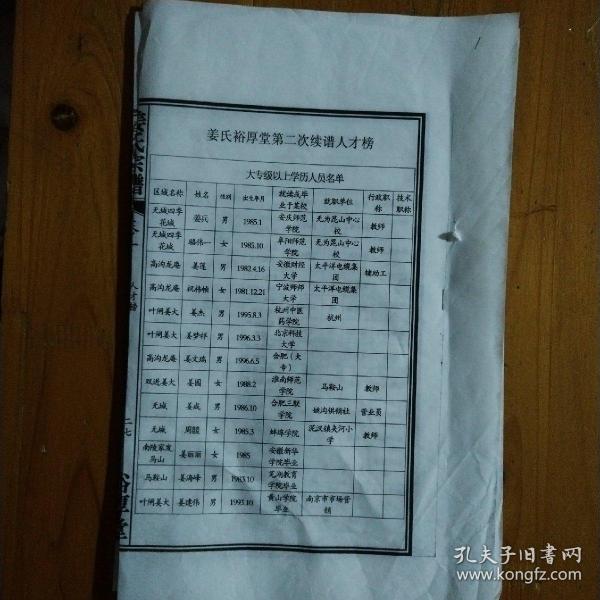 姜氏裕厚堂第二次续谱人才榜
大专级以上学历人员名单
区域名称 姓名 性别 出生年月 就读或毕业于某校 就职单位 行政职称 技术职称
无城四季花城 姜兵 男 1985.1 安庆师范学院 无为昆山中心校 教师
无城四季花城 骆伟一 女 1985.10 阜阳师范学院 无为昆山中心校 教师
高沟龙庵 姜莲 男 1982.4.16 安徽财经大学 太平洋电缆集团 辅助工
高沟龙庵 祝伟帧 女 1981.12.21 宁波师师大学 太平洋电缆集团
叶闸姜大 姜杰 男 1995.8.3 杭州中医药学院 杭州
叶闸姜大 姜梦祥 男 1996.3.3 北京科技大学
高沟龙庵 姜文瑞 男 1996.6.5 合肥（大专）
双进姜大 姜园 女 1988.2 淮南师范学院 马鞍山 教师
无城 姜成 男 1986.10 合肥三联学院 姚沟供销社 营业员
无城 周 女 1985.3 蚌埠学院 泥汊镇夹河小学 教师
南陵家发马山 姜丽丽 女 1985 安徽新华学院毕业
马鞍山 姜海峰 男 1983.10 芜湖教育学院毕业
叶闸姜大 姜建伟 男 1993.10 黄山学院毕业 南京市市场营销
姜氏宗谱
人才榜
二七
裕厚堂
孔夫子旧书网
www.kongfz.com